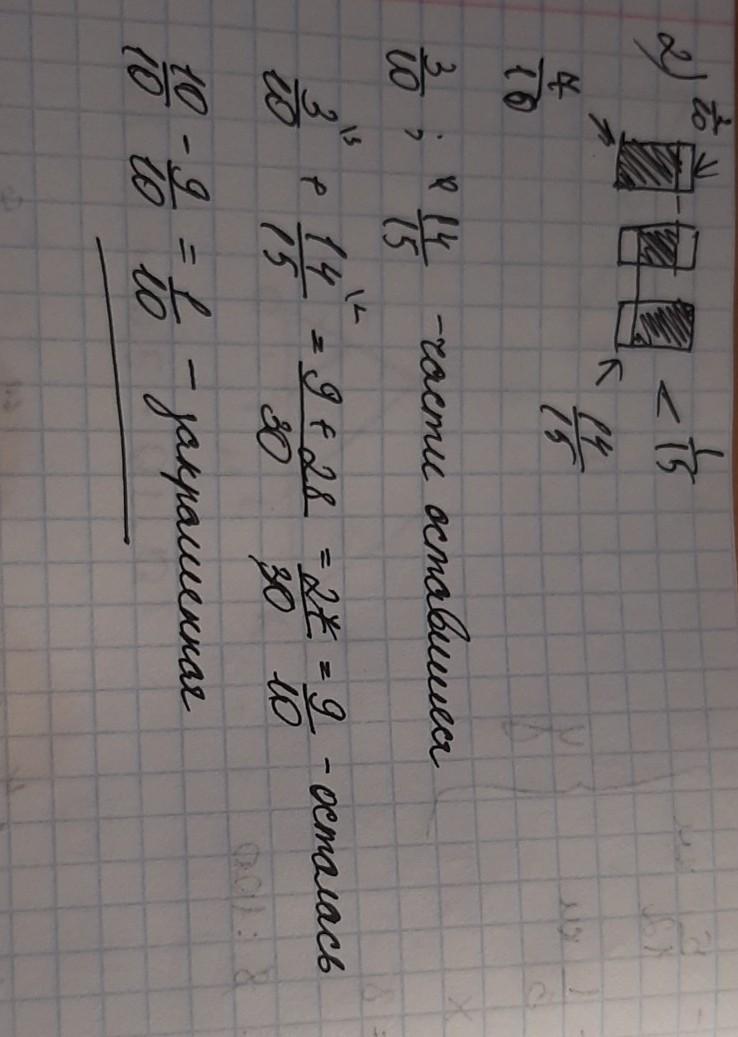 2) 3/10 < 1/15
7/10 14/15
3/10 ; и 14/15 - части оставшиеся
3/10 + 14/15 = 9+28/30 = 27/30 = 9/10 - осталась
10/10 - 9/10 = 1/10 - закрашенная